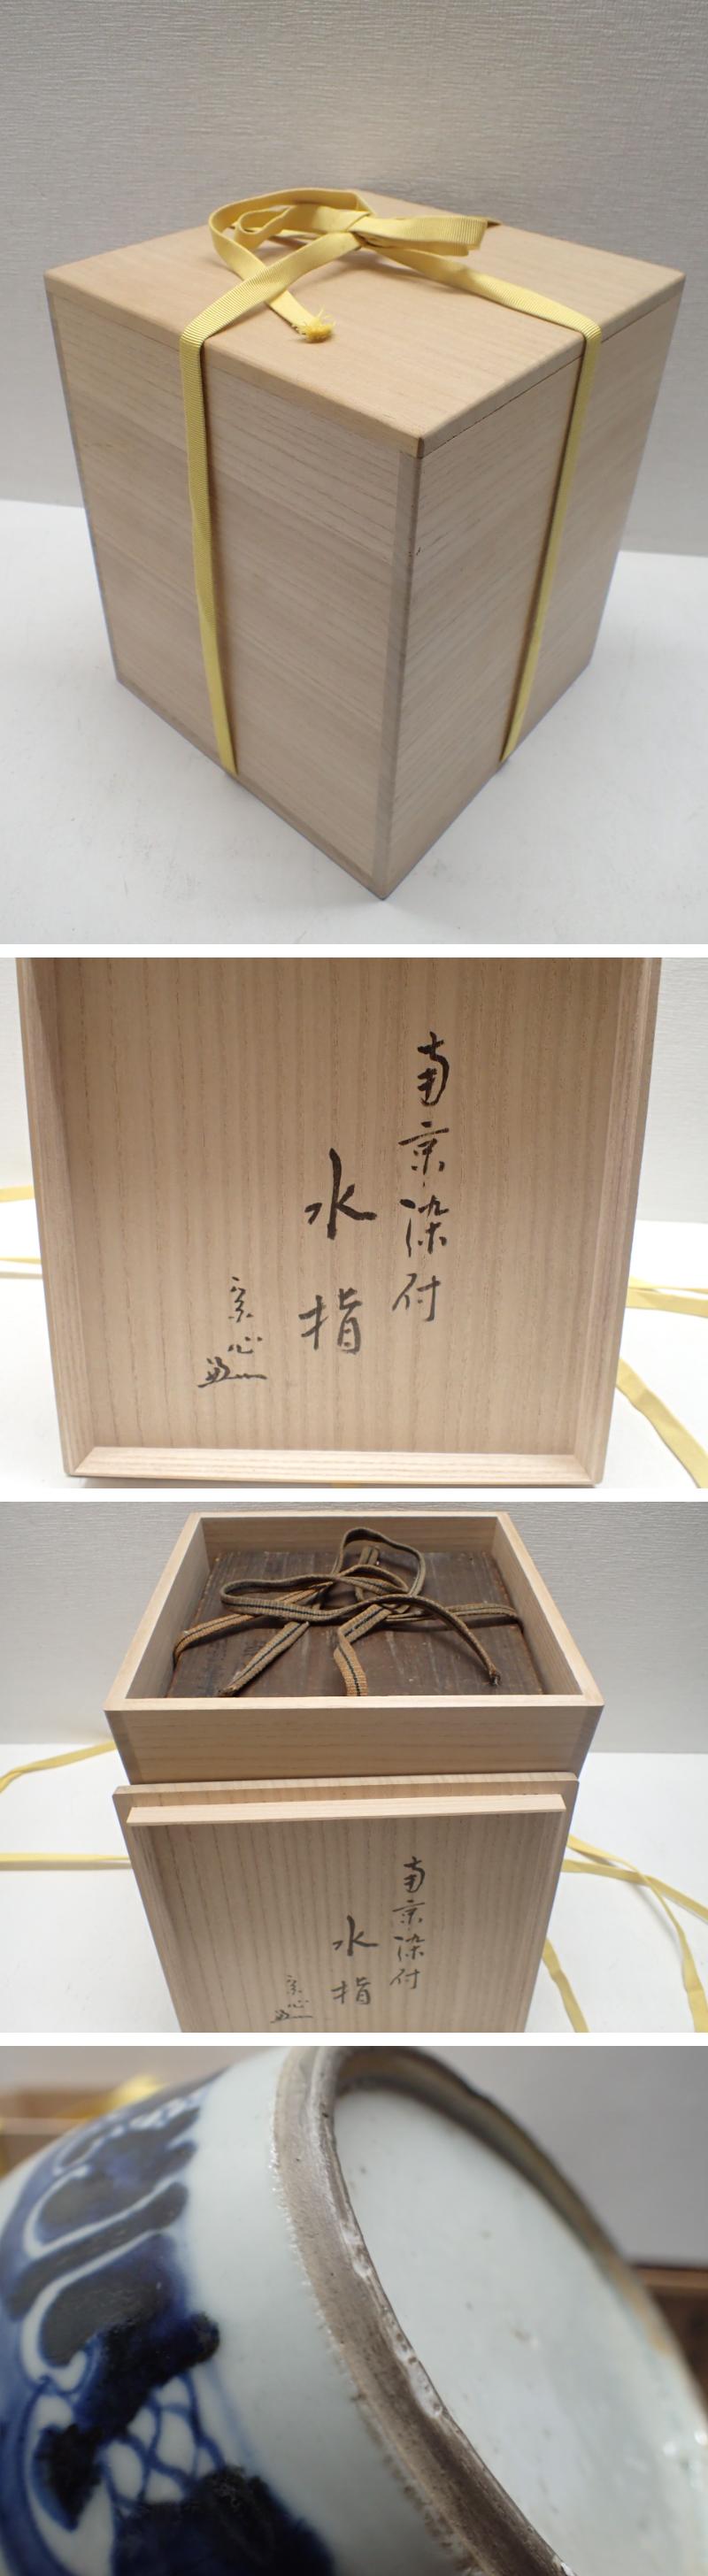 南京染付
水指
宗心
南京染付
水指
宗心